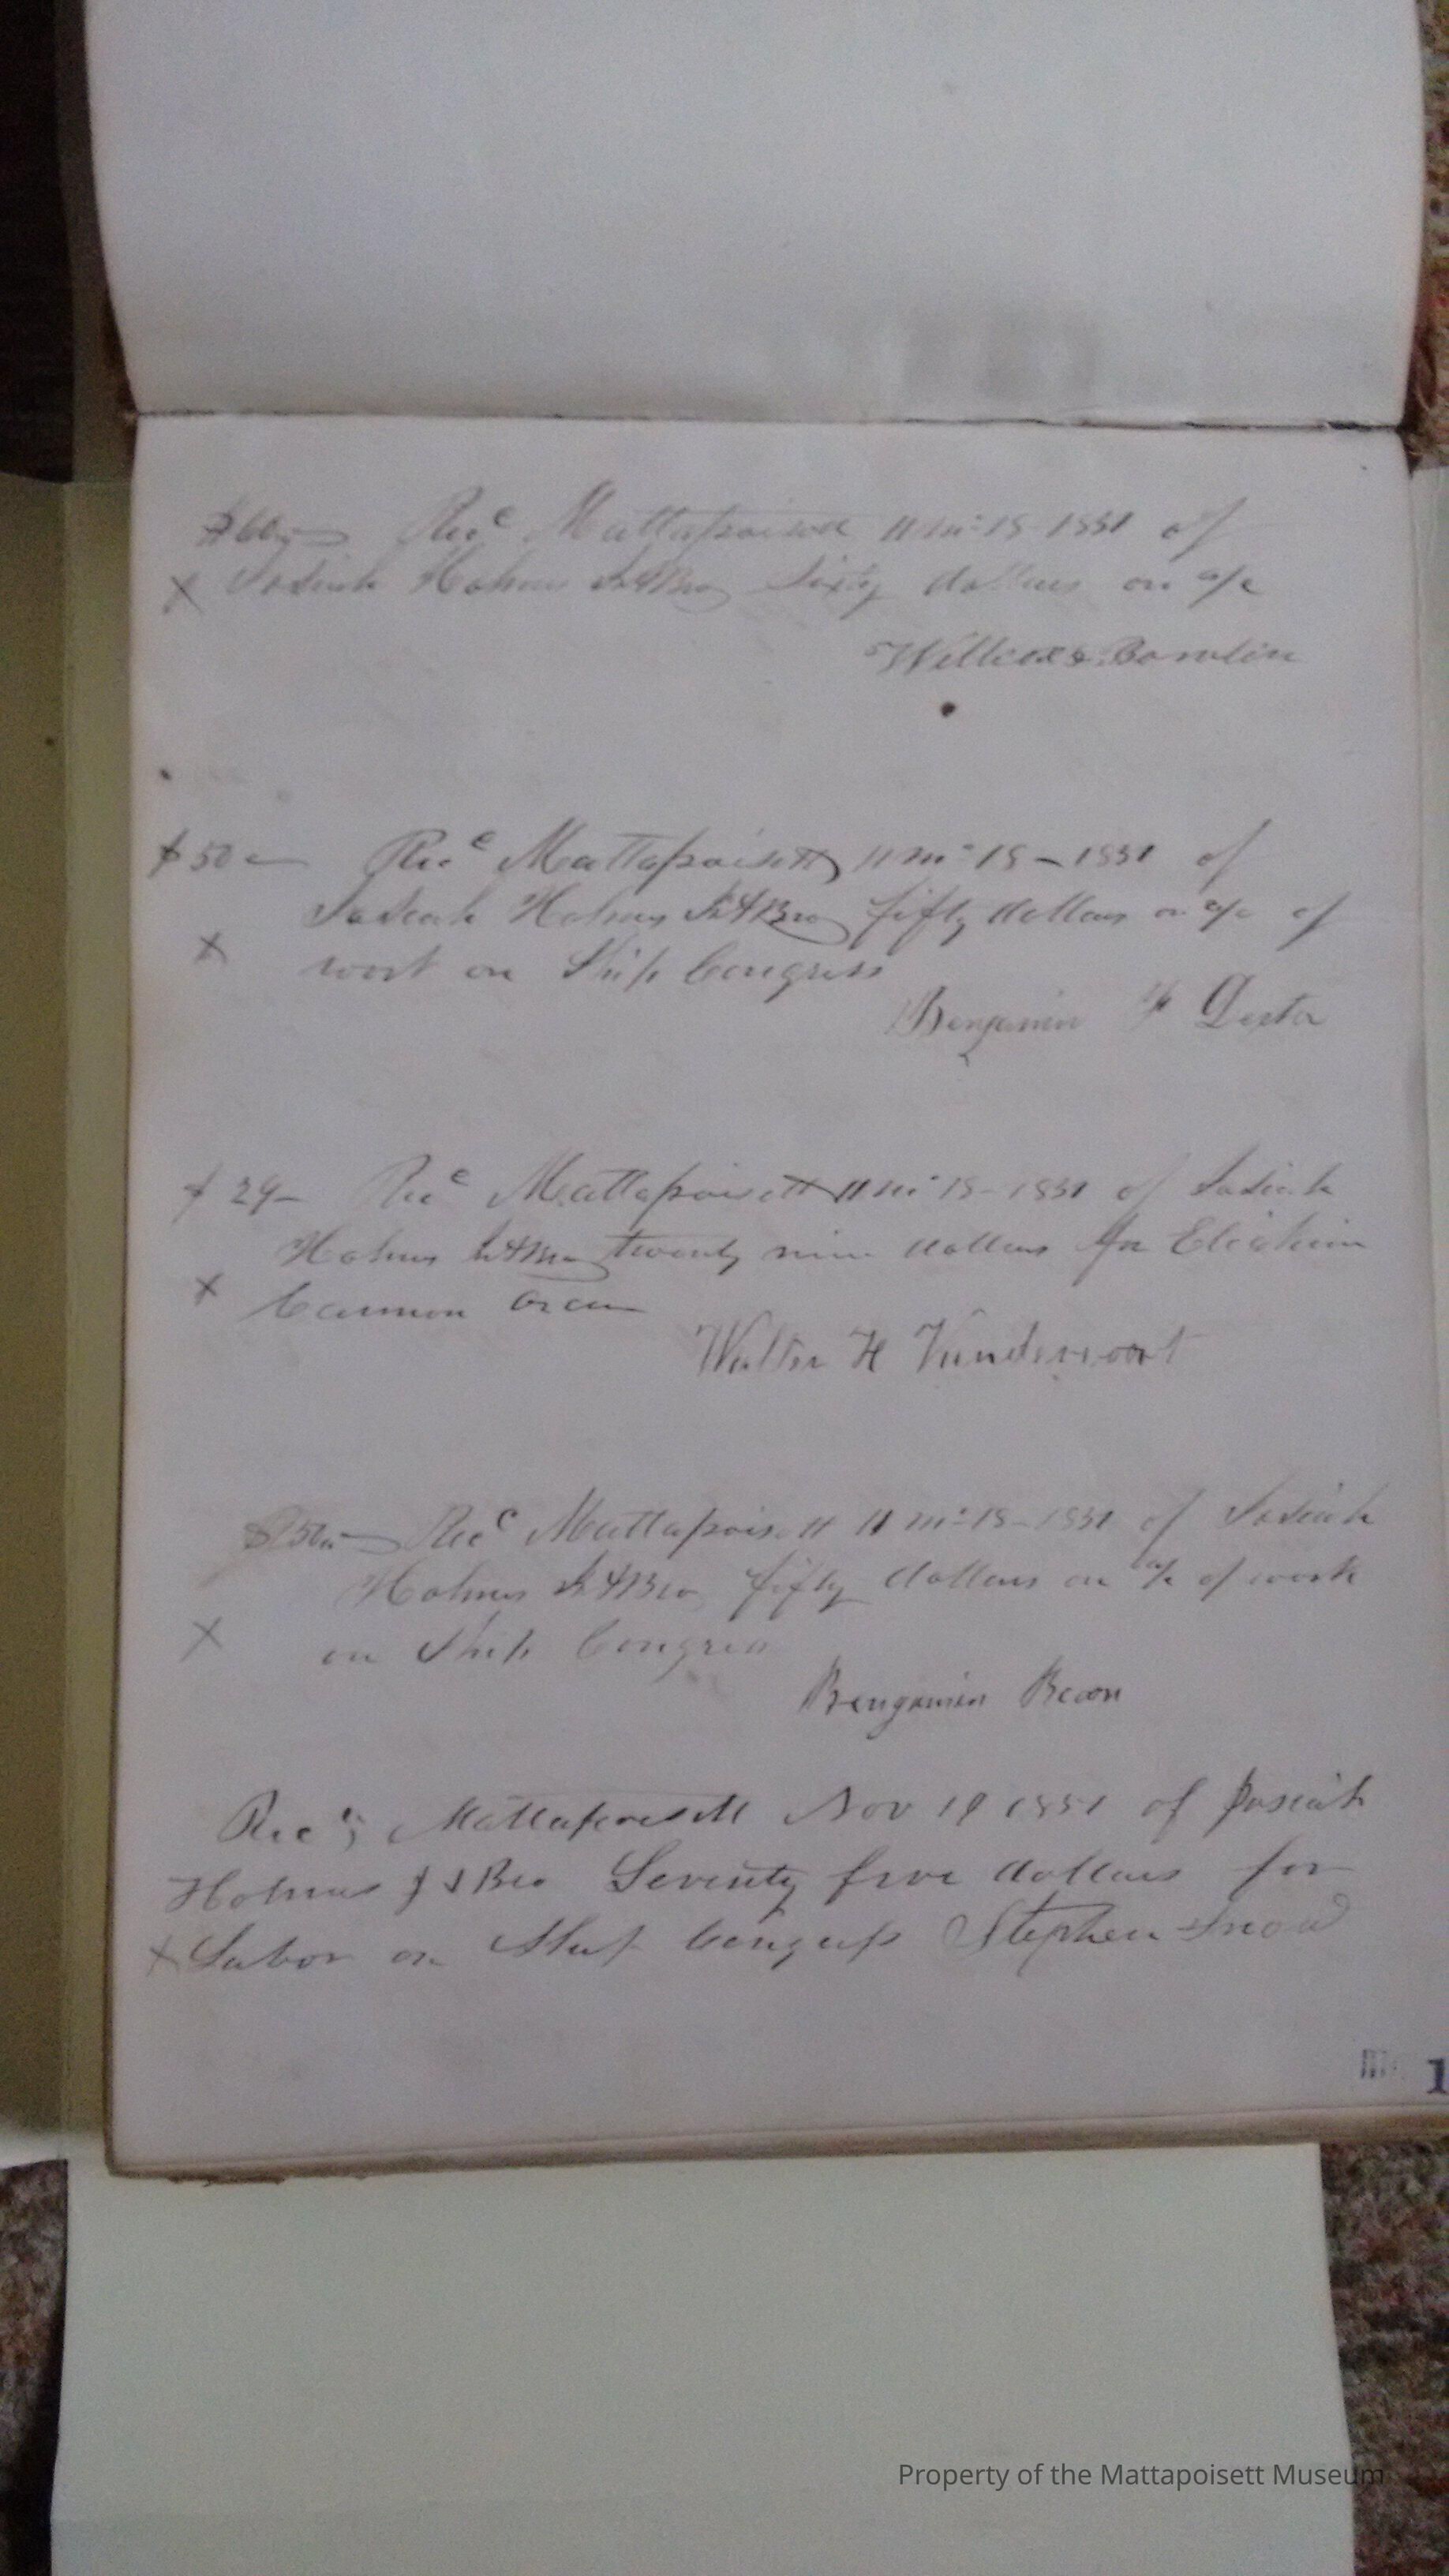 $60,— Rec^e Mattapoisett 11 m: 15 1851 of
x Josiah Holmes Jr & Bro Sixty dollars on a/c
Willcox & Bowlin
$50 — Rec^e Mattapoisett 11 m: 15 — 1851 of
Josiah Holmes Jr & Bro fifty dollars on a/c of
x work on Ship Congress
Benjamin Dexter
$29 — Rec^e Mattapoisett 11 m: 15 - 1851 of Josiah
Holmes Jr & Bro twenty nine dollars for Eliakim
x Cannon
Walter H Vandervoort
$50 — Rec^c Mattapoisett 11 m: 15 - 1851 of Josiah
Holmes Jr & Bro fifty dollars on a/c of work
x on Ship Congress
Bengamin Bacon
Rec^d Mattapoisett Nov 19 1851 of Josiah
Holmes J & Bro Seventy five dollars for
x Labor on Ship Congress Stephen Snow
1
Property of the Mattapoisett Museum